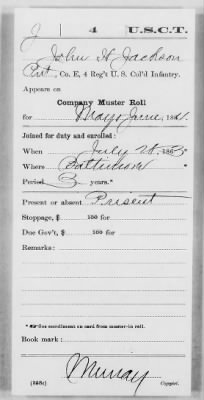 J | 4 | U.S.C.T.
John H Jackson
Pvt, Co. E, 4 Reg't U. S. Col'd Infantry.
Appears on
Company Muster Roll
for May & June, 1864.
Joined for duty and enrolled:
When July 28, 1863.*
Where Baltimore
Period 3 years.*
Present or absent Present
Stoppage, $ 100 for
Due Gov't, $ 100 for
Remarks:
*See enrollment on card from muster-in roll.
Book mark:
Murray
(358c) Copyist.